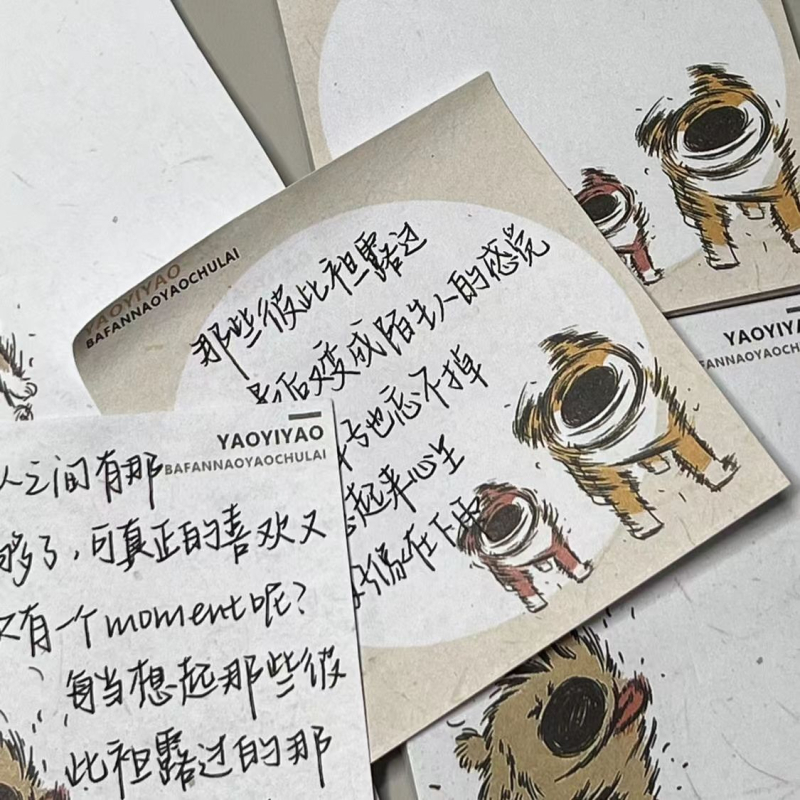 YAOYIYAO
BAFANNAOYAOCHULAI
那些彼此袒露过
最后又变成陌生人的感觉
也忘不掉
起来心生
好像在下雨
YAOYIYAO
BAFANNAOYAOCHULAI
人之间有那
够了，可真正的喜欢又
有一个moment呢？
每当想起那些彼
此袒露过的那
YAOYIYAO
FANNAOYAOCH